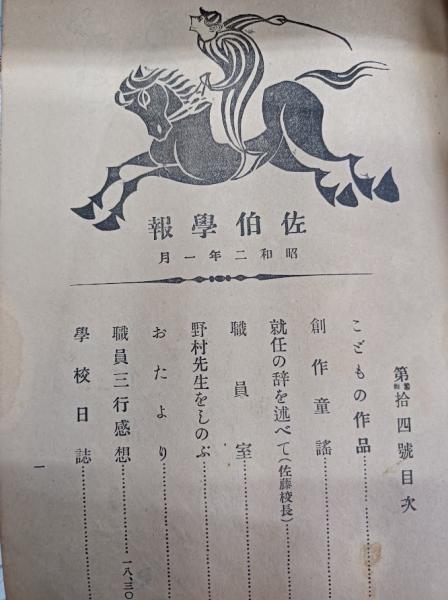 佐伯學報
昭和二年一月
第拾四號目次
こどもの作品…………
創作童謠…………
就任の辞を述べて（佐藤校長）…………
職員室…………
野村先生をしのぶ…………
おたより…………
職員三行感想…………一八、三〇
學校日誌…………
一